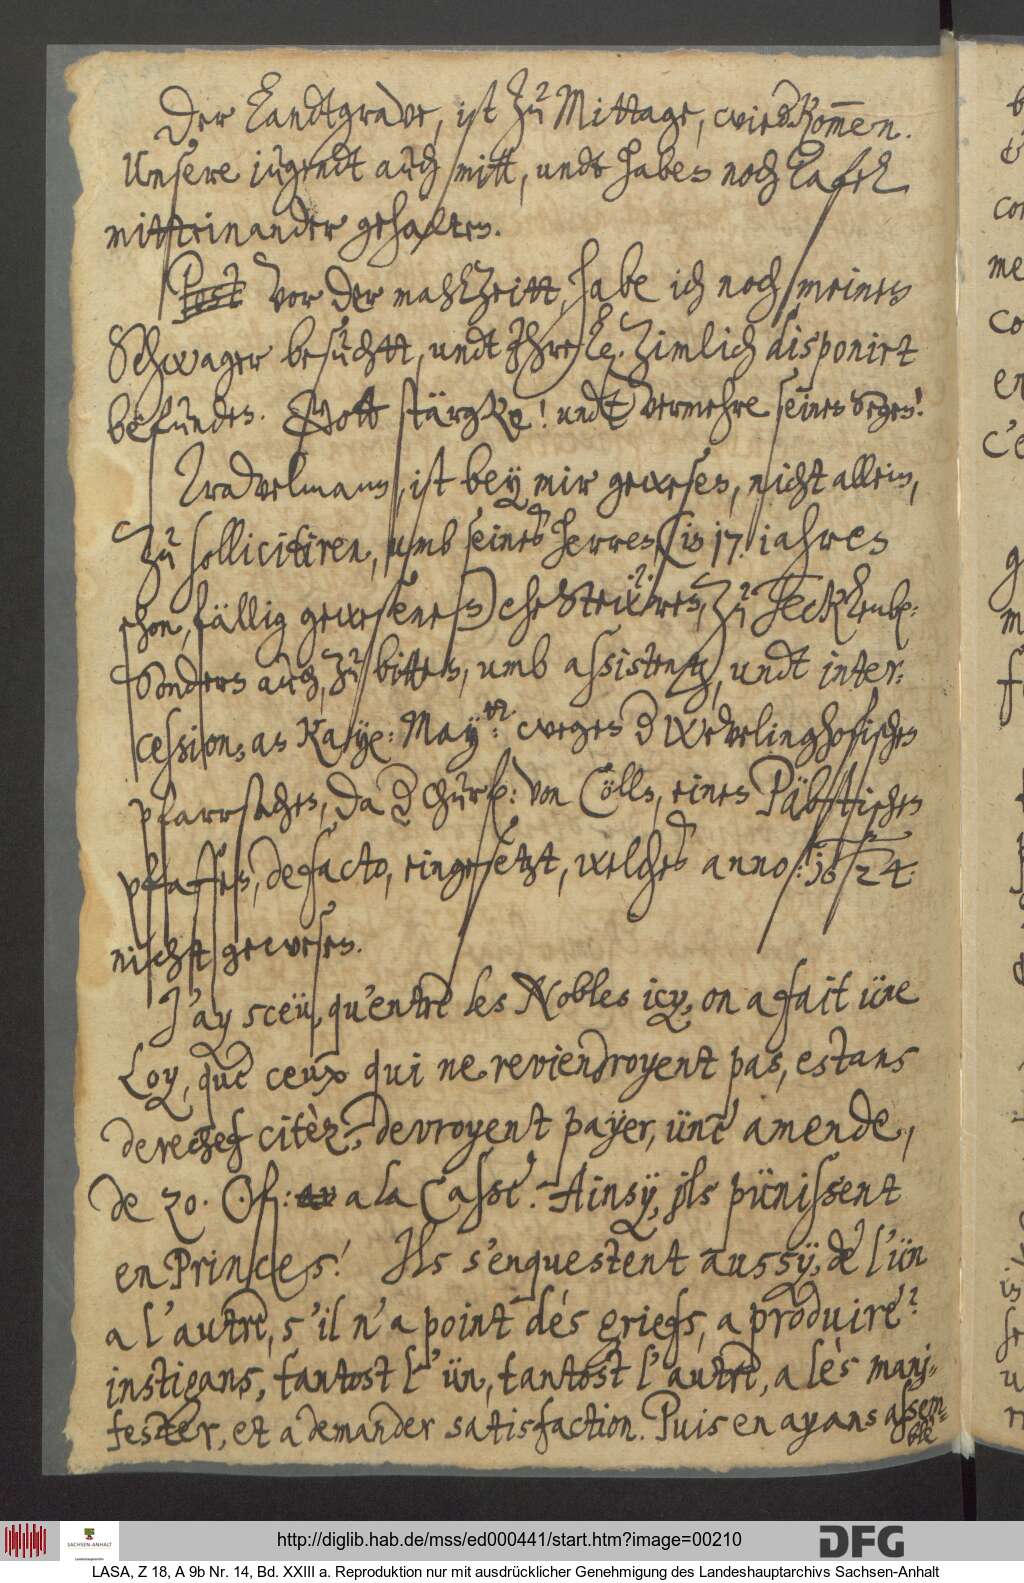 Der Landtgrave, ist zu Mittage, wied kom̅en.
Unsere iugendt auch mitt, undt haben noch Tafel
mitteinander gehalten.
Post Vor der mahlzeitt, habe ich noch, meinen
Schwager besuchtt, undt Ihre L. zimlich disponirt
befunden. Gott stärgke! undt vermehre seinen Segen!
Tradvelmann, ist bey mir gewesen, nicht allein,
zu sollicitiren, umb seines herren, (in 17. iahren
schon, fällig gewesenen) zu Tecklenb:
Sonders auch, zu bitten, umb assistentz, undt inter:
cession, an Kaye: Maytt: wegen d Wevelinghofischen
pfarrsachen, da d Churf: von Cölln, einen Päbstischen
pfaffen, de facto, eingesetzt, welches anno: 1624.
nicht gewesen.
J'ay sceü, qu'entre les Nobles icy, on a fait üne
Loy, que ceux qui ne reviendroyent pas, estans
derechef citèz, devroyent payer, üne amende,
de 20. Gf: a la Casse. Ainsÿ, jls pünissent
en Princes! Ils s'enquestent aussÿ, de l'ün
a l'autre, s'il n'a point des griefs, a produire?
instigans, tantost l'ün, tantost l'autre, a les mani-
fester, et a demander satisfaction. Puis en ayans assem-
blè
http://diglib.hab.de/mss/ed000441/start.htm?image=00210
SACHSEN-ANHALT
DFG
LASA, Z 18, A 9b Nr. 14, Bd. XXIII a. Reproduktion nur mit ausdrücklicher Genehmigung des Landeshauptarchivs Sachsen-Anhalt